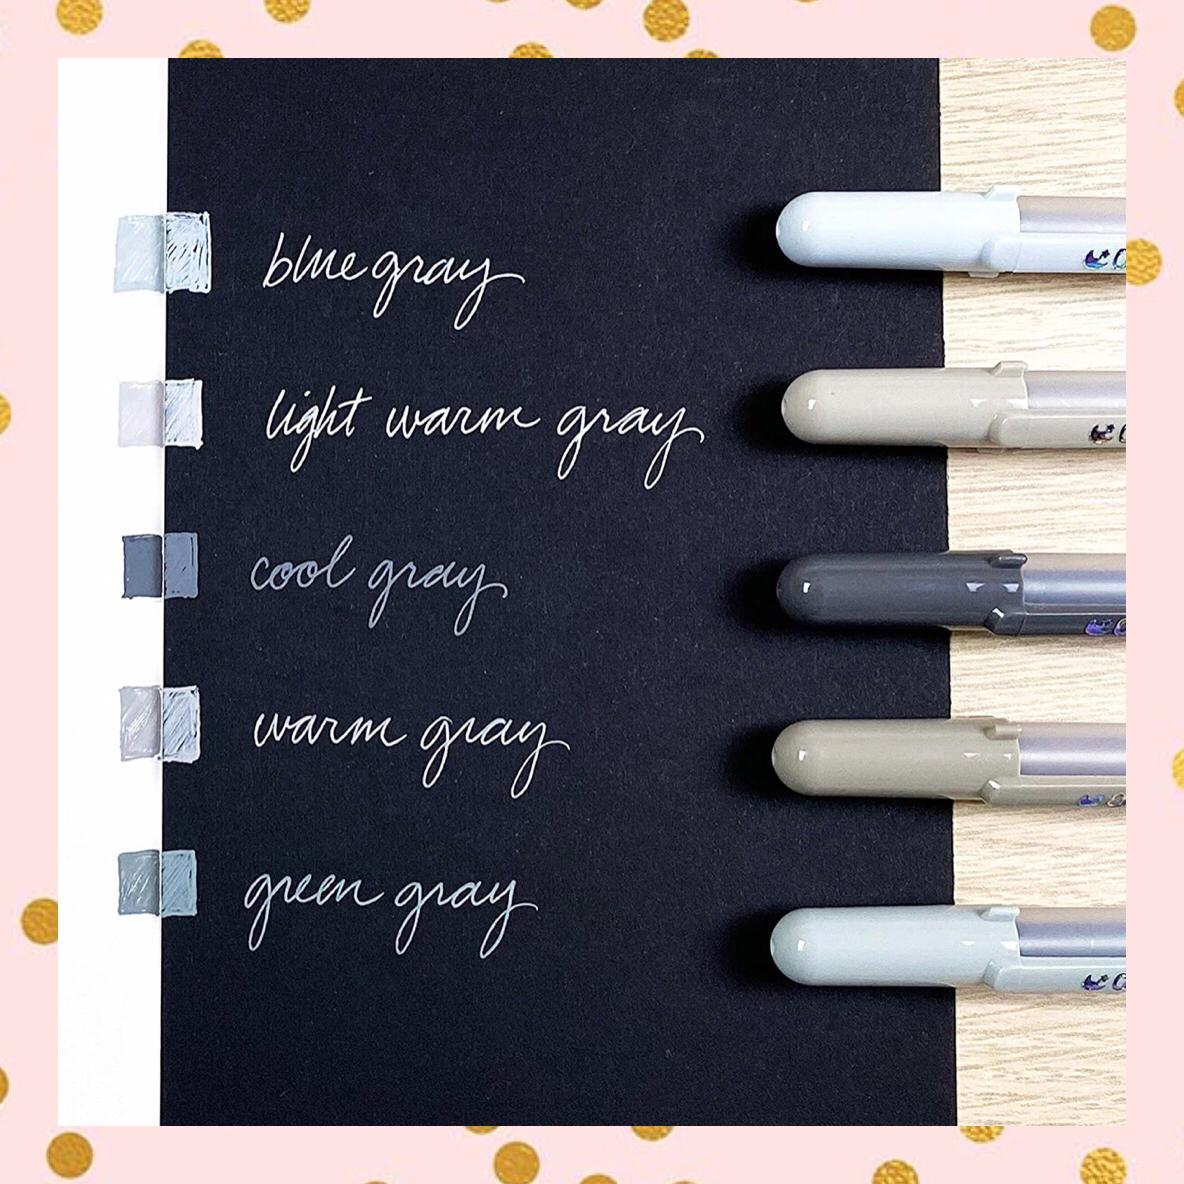 blue gray
light warm gray
cool gray
warm gray
green gray